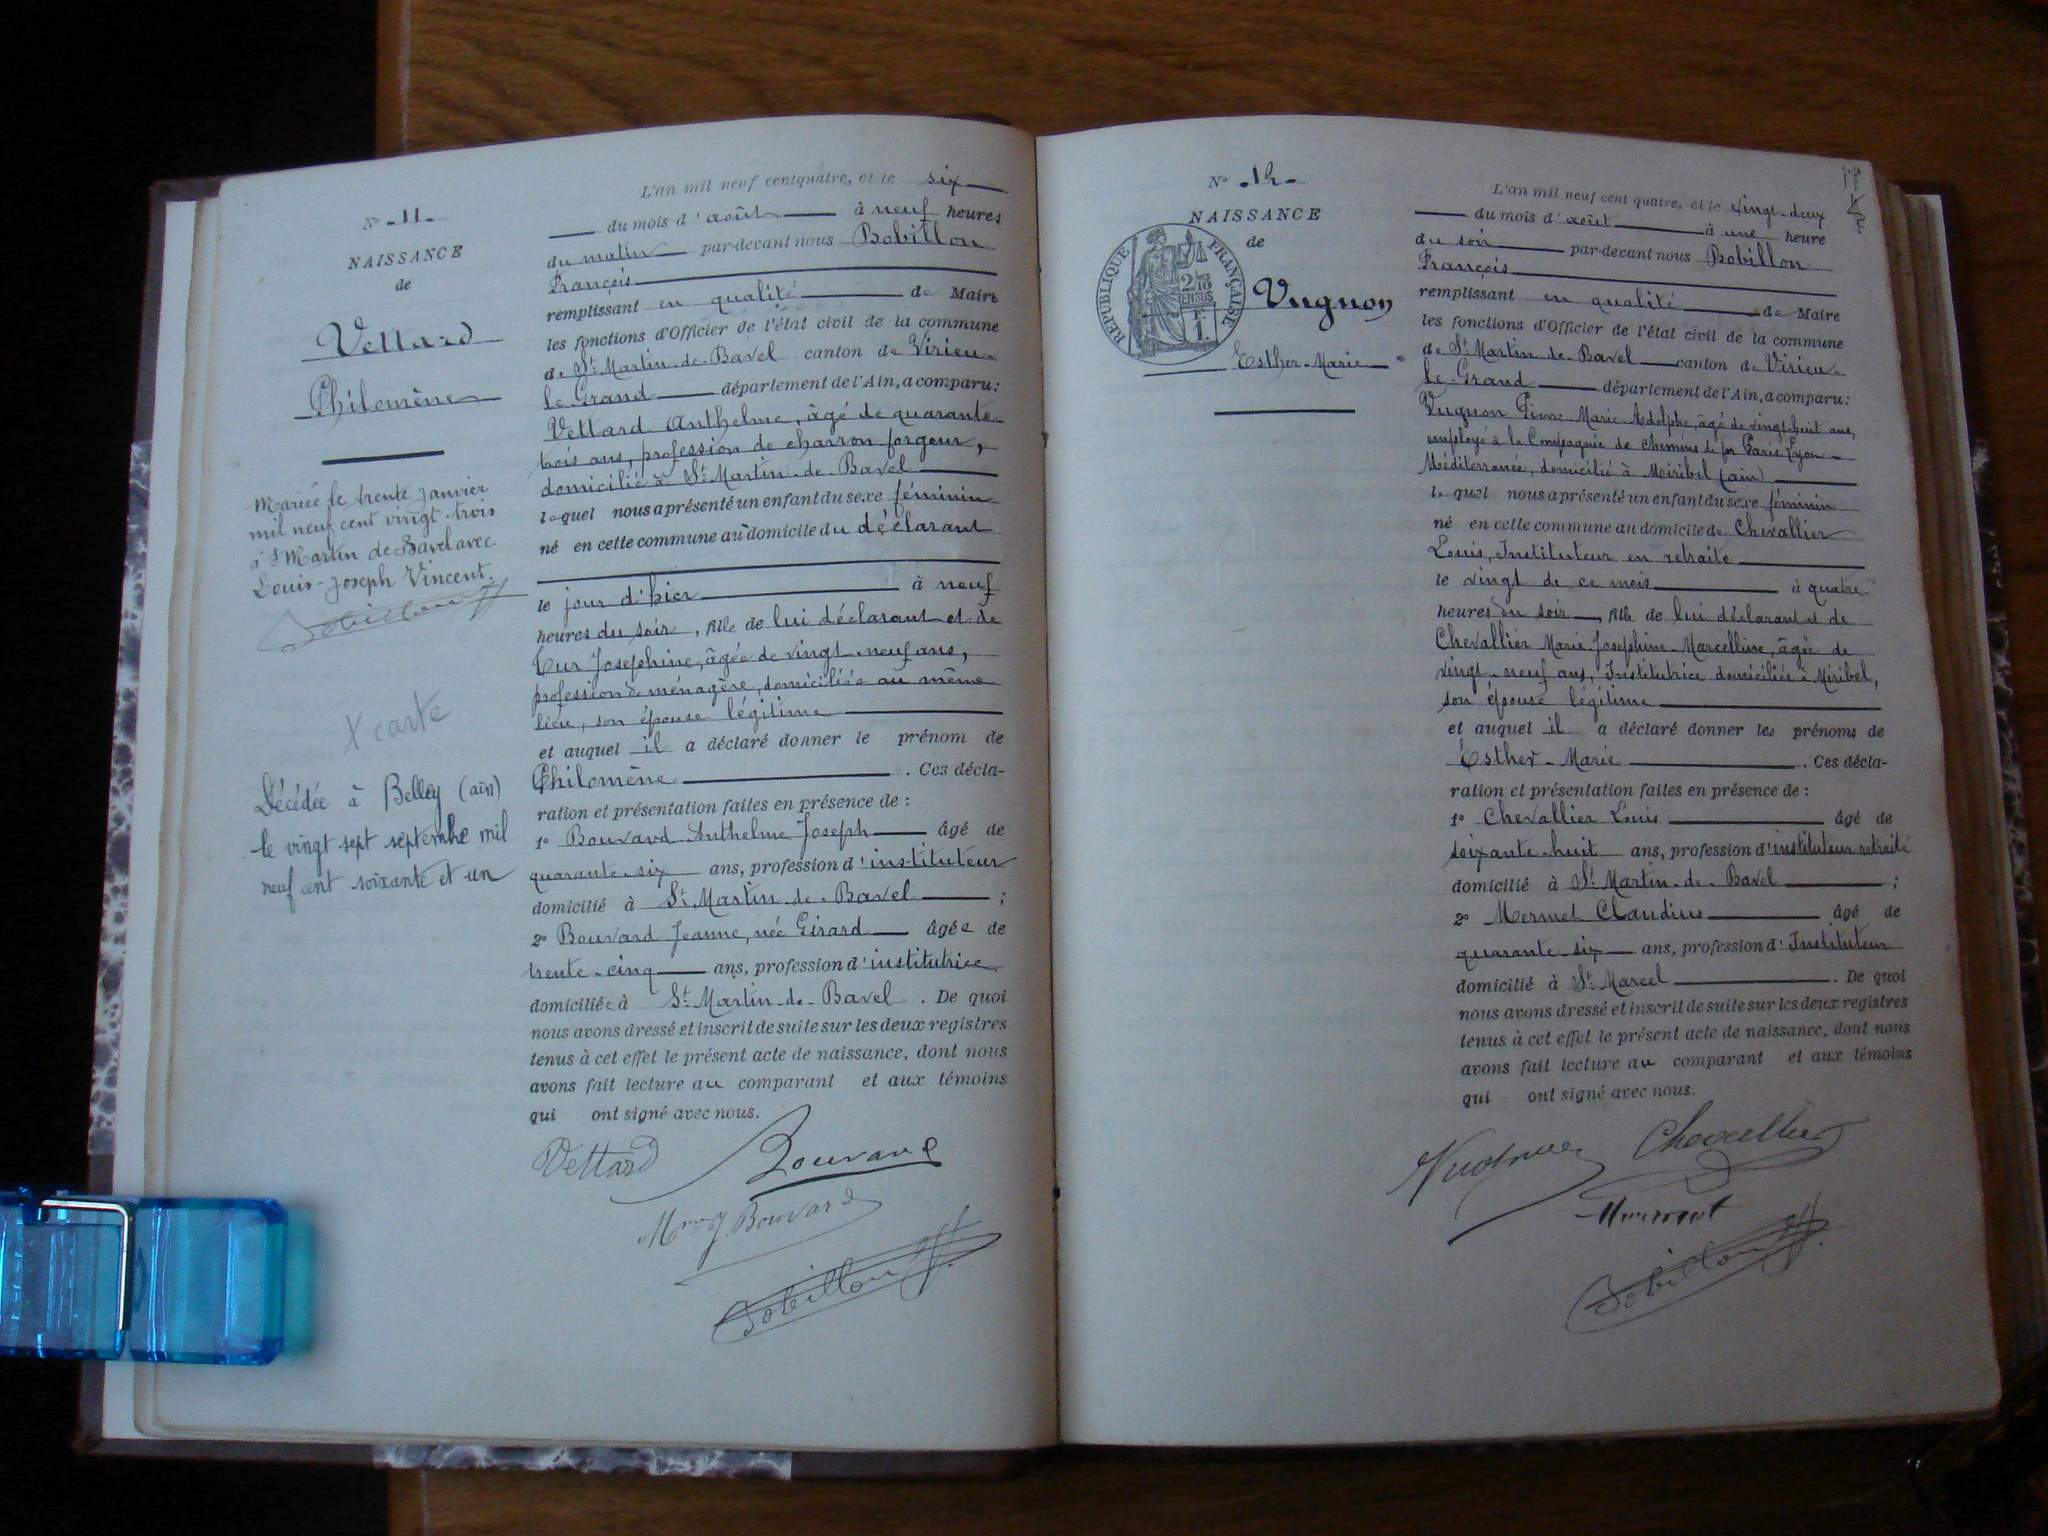 Nº -11-
NAISSANCE
de
Vettard
Philomène
Mariée le trente janvier
mil neuf cent vingt-trois
à St Martin de Bavel avec
Louis-Joseph Vincent.
Bobillon
X carte
Décédée à Belley (ain)
le vingt sept septembre mil
neuf cent soixante et un
L'an mil neuf cent quatre, et le six
du mois d'août à neuf heures
du matin par-devant nous Bobillon
François
remplissant en qualité de Maire
les fonctions d'Officier de l'état civil de la commune
de St Martin-de-Bavel canton de Virieu-
le-Grand département de l'Ain, a comparu:
Vettard Anthelme, âgé de quarante-
trois ans, profession de charron forgeur,
domicilié à St Martin-de-Bavel
lequel nous a présenté un enfant du sexe féminin
né en cette commune au domicile du déclarant
le jour d'hier à neuf
heures du soir, fille de lui déclarant et de
Cur Joséphine, âgée de vingt-neuf ans,
profession de ménagère, domiciliée au même
lieu, son épouse légitime
et auquel il a déclaré donner le prénom de
Philomène. Ces décla-
ration et présentation faites en présence de :
1º Bouvard Anthelme Joseph âgé de
quarante-six ans, profession d'instituteur
domicilié à St Martin-de-Bavel ;
2º Bouvard Jeanne, née Girard âgée de
trente-cinq ans, profession d'institutrice
domiciliée à St Martin-de-Bavel. De quoi
nous avons dressé et inscrit de suite sur les deux registres
tenus à cet effet le présent acte de naissance, dont nous
avons fait lecture au comparant et aux témoins
qui ont signé avec nous.
Vettard Bouvard
Mme J. Bouvard
Bobillon
Nº -12-
NAISSANCE
de
RÉPUBLIQUE FRANÇAISE
2/10 EN SUS
F.
1.
Vugnon
Esther-Marie
L'an mil neuf cent quatre, et le vingt-deux
du mois d'août à une heure
du soir par-devant nous Bobillon
François
remplissant en qualité de Maire
les fonctions d'Officier de l'état civil de la commune
de St Martin-de-Bavel canton de Virieu-
le-Grand département de l'Ain, a comparu:
Vugnon Pierre-Marie Adolphe, âgé de vingt-huit ans,
employé à la Compagnie de chemins de fer Paris-Lyon-
Méditerranée, domicilié à Miribel (ain)
lequel nous a présenté un enfant du sexe féminin
né en cette commune au domicile de Chevallier
Louis, Instituteur en retraite
le vingt de ce mois à quatre
heures du soir, fille de lui déclarant et de
Chevallier Marie-Joséphine-Marcelline, âgée de
vingt-neuf ans, Institutrice domiciliée à Miribel,
son épouse légitime
et auquel il a déclaré donner les prénoms de
Esther-Marie. Ces décla-
ration et présentation faites en présence de :
1º Chevallier Louis âgé de
soixante-huit ans, profession d'instituteur retraité
domicilié à St Martin-de-Bavel ;
2º Mermet Claudius âgé de
quarante-six ans, profession d'Instituteur
domicilié à St Marcel. De quoi
nous avons dressé et inscrit de suite sur les deux registres
tenus à cet effet le présent acte de naissance, dont nous
avons fait lecture au comparant et aux témoins
qui ont signé avec nous.
Chevallier
Mermet
Bobillon